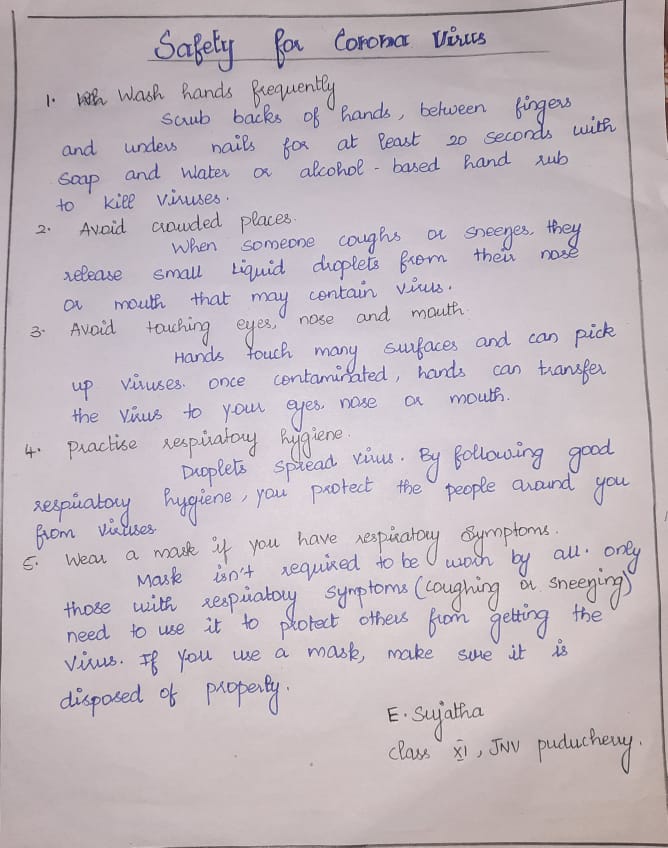 Safety for Corona Virus
1. Wash hands frequently
Scrub backs of hands, between fingers
and unders nails for at least 20 seconds with
Soap and Water or alcohol-based hand rub
to kill viruses.
2. Avoid crowded places.
When someone coughs or sneezes, they
release small liquid droplets from their nose
or mouth that may contain virus.
3. Avoid touching eyes, nose and mouth.
Hands touch many surfaces and can pick
up viruses. once contaminated, hands can transfer
the virus to your eyes, nose or mouth.
4. Practise respiratory hygiene.
Droplets spread virus. By following good
respiratory hygiene, you protect the people around you
from viruses
5. Wear a mask if you have respiratory symptoms.
Mask isn't required to be worn by all. only
those with respiratory symptoms (coughing or sneezing)
need to use it to protect others from getting the
virus. If you use a mask, make sure it is
disposed of properly.
E. Sujatha
class XI, JNV puducherry.